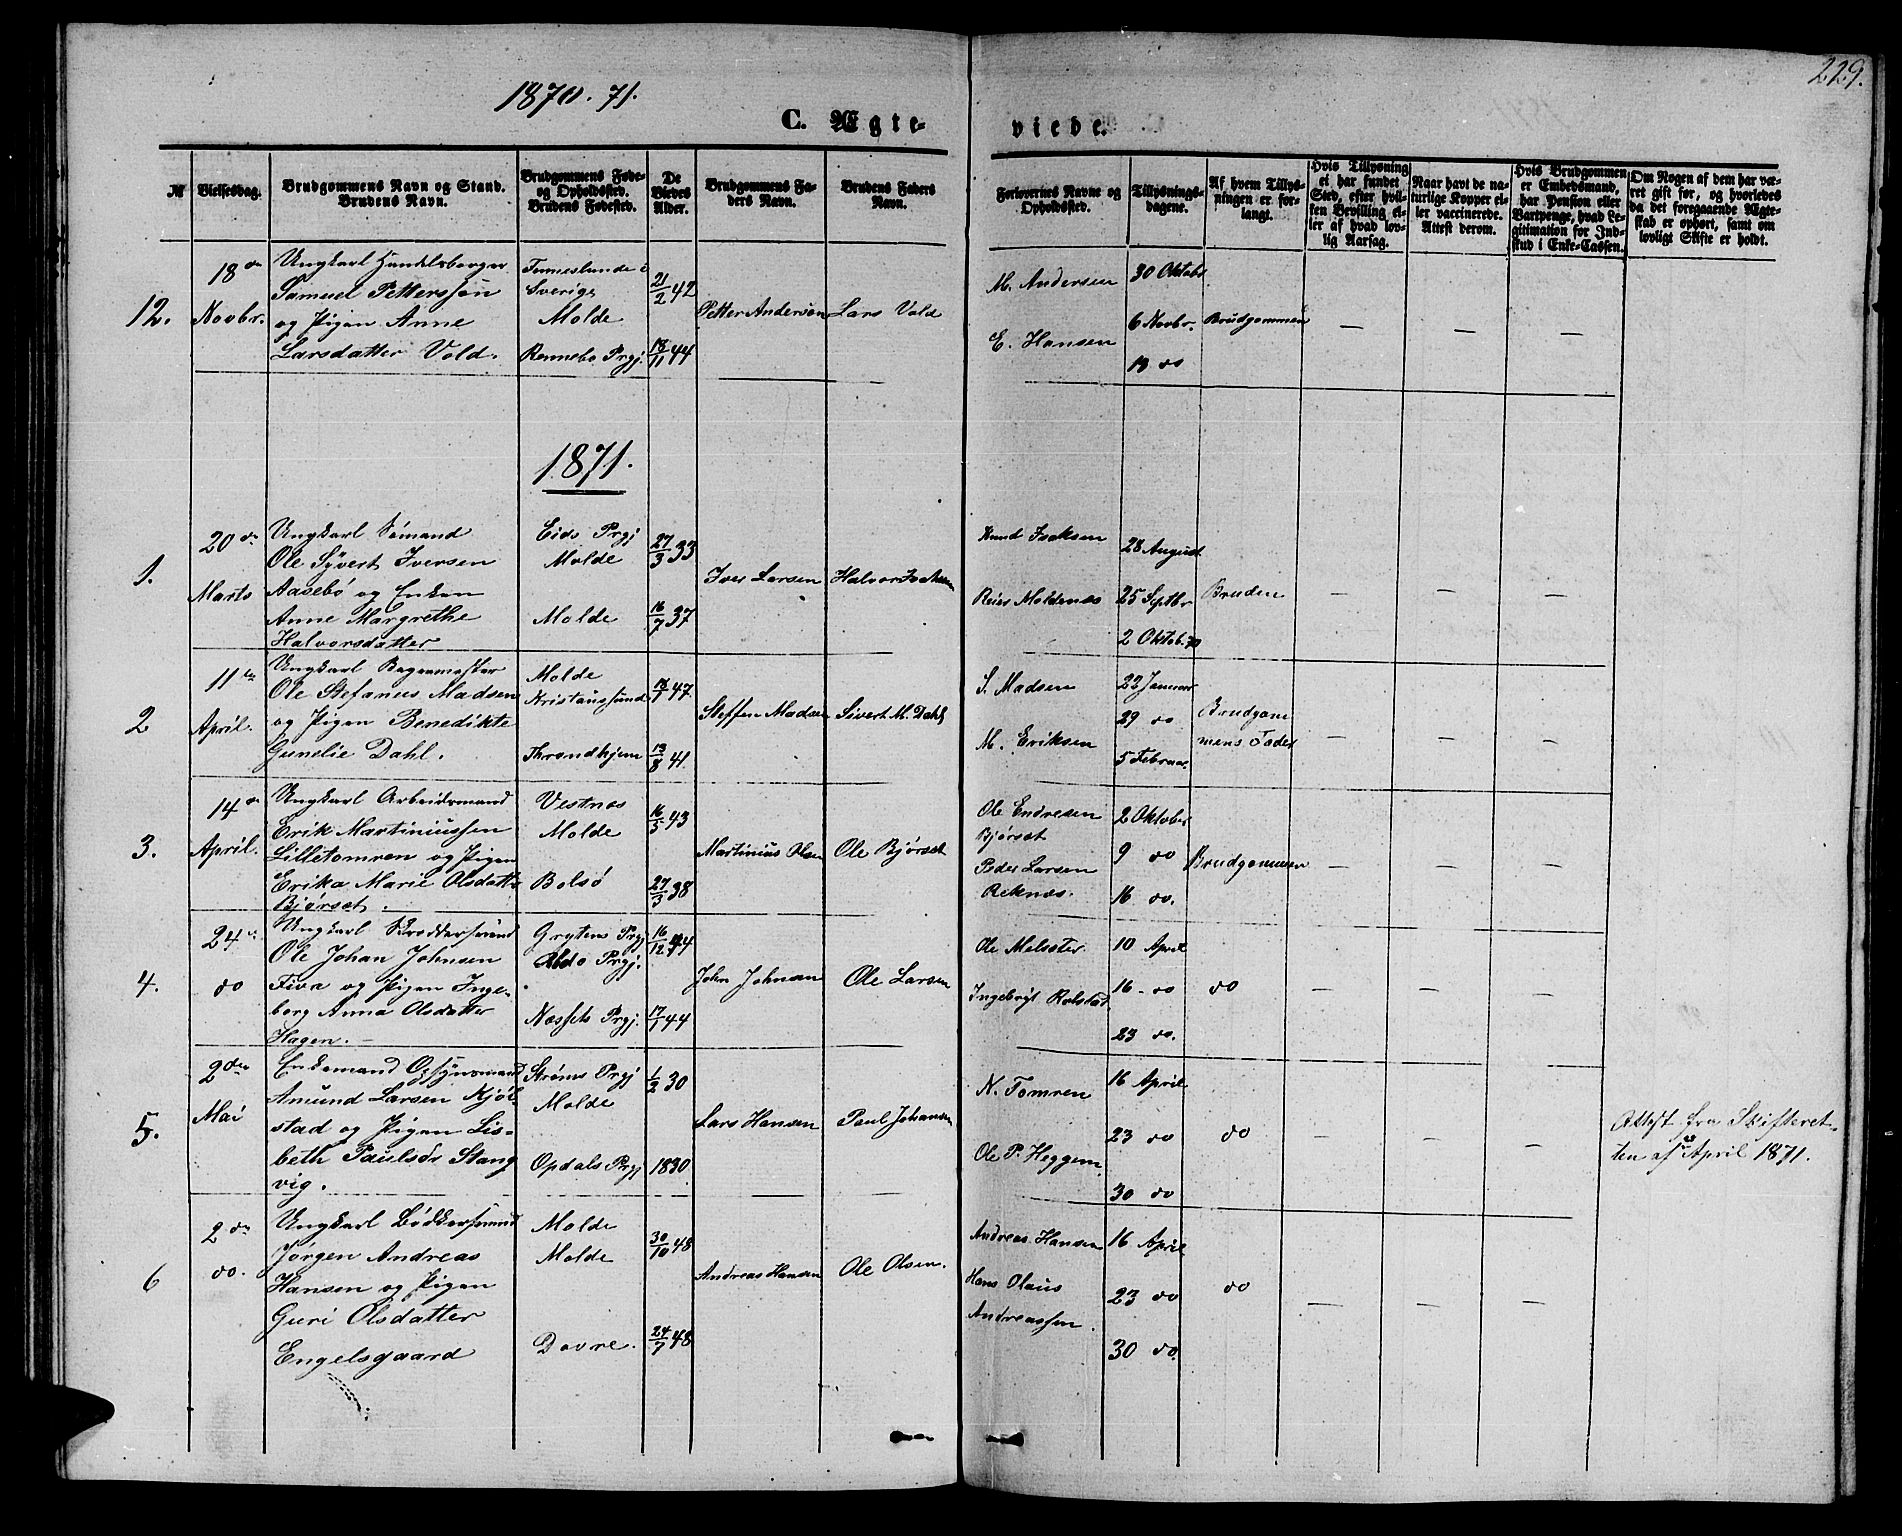 229.
1870.71.
C. Ægteviede.
№
Vielsesdag.
Brudgommens Navn og Stand.
Brudens Navn.
Brudgommens Føde-
og Opholdssted.
Brudens Fødested.
De
Viedes
Alder.
Brudgommens Fa-
ders Navn.
Brudens Faders
Navn.
Forlovernes Navne og
Opholdssted.
Tillysnings-
dagene.
Af hvem Tillys-
ningen er for-
langt.
Hvis Tillysning
ei har fundet
Sted, efter hvil-
ken Bevilling el-
ler af hvad lov-
lig Aarsag.
Naar havt de na-
turlige Kopper el-
ler vaccinerede.
Attest derom.
Hvis Brudgommen
er Embedsmand,
har Pension eller
Vartpenge, hvad Le-
gitimation for Ind-
skud i Enke-Cassen.
Om Nogen af dem har væ-
ret gift før, og hvorledes
da det foregaaende Ægte-
skab er ophørt, samt om
lovligt Skifte er holdt.
12.
18de
Novbr.
Ungkarl Handelsborger
Samuel Petterssøn
og Pigen Anne
Larsdatter Vold.
Sverige
Molde
Rennebo Prgj.
21/2 42
18/11 44
Petter Andersøn
Lars Vold
M. Andersen
E. Hansen
30 Oktobr
6 Novbr.
13 do
Brudgommen
— — —
1871.
1.
20de
Marts
Ungkarl Sømand
Ole Syvert Iversen
Aasebø og Enken
Anne Margrethe
Halvorsdatter
Eids Prgj
Molde
Molde
27/3 33
16/7 37
Iver Larsen
Knud Isaksen
Reier Moldenæs
28 August
25 Septbr
2 Oktob. 70
Bruden
— — —
2
11te
April.
Ungkarl Bagermester
Ole Stefanus Madsen
og Pigen Benedikte
Gunelie Dahl.
Molde
Kristianssund
Throndhjem
47
13/8 41
Steffen Madsen
Sivert M. Dahl
S. Madsen
M. Eriksen
22 Januar
29 do
5 Februar.
Brudgom
mens Fader
— — —
3.
14de
April.
Ungkarl Arbeidsmand
Erik Martiniussen
Lilletomren og Pigen
Erika Marie Olsdattr
Bjørset.
Vestnæs
Molde
Bolsø
16/5 43
27/3 38
Martinius Olsen
Ole Bjørset
Ole Endresen
Bjørset
Peder Larsen
Reknæs.
2 Oktober
9 do
16 do.
Brudgommen
— — —
4.
24de
do
Ungkarl Skræddersvend
Ole Johan Johnsen
Fiva og Pigen Inge-
borg Anna Olsdatter
Hagen. —
Grytens Prgj
Prgj.
Næssets Prgj.
16/12 44
17/1 44
John Johnsen
Ole Larsen
Ole Melsæter
Ingebrigt Rolstad
10 April
16 - do
23 do.
do
— — —
5.
2den
Mai
Enkemand Opsynsmand
Amund Larsen Kjøl-
stad og Pigen Lis-
beth Paulsdr Stang
vig.
Strøms Prgj
Molde
Opdals Prgj
1/2 30
1830
Lars Hansen
Paul Johansen
N. Tomren
Ole P. Heggem
16 April
23 do
30 do
do
— — —
Attest fra Skifteret-
ten af April 1871.
6
2den
do.
Ungkarl Bødkersvend
Jørgen Andreas
Hansen og Pigen
Guri Olsdatter
Engelsgaard
Molde
Molde
Dovre.
30/10 48
24/7 48
Andreas Hansen
Ole Olsen.
Andreas Hansen
Hans Olaus
Andreassen.
16 April
23 do
30 do.
do
— — —